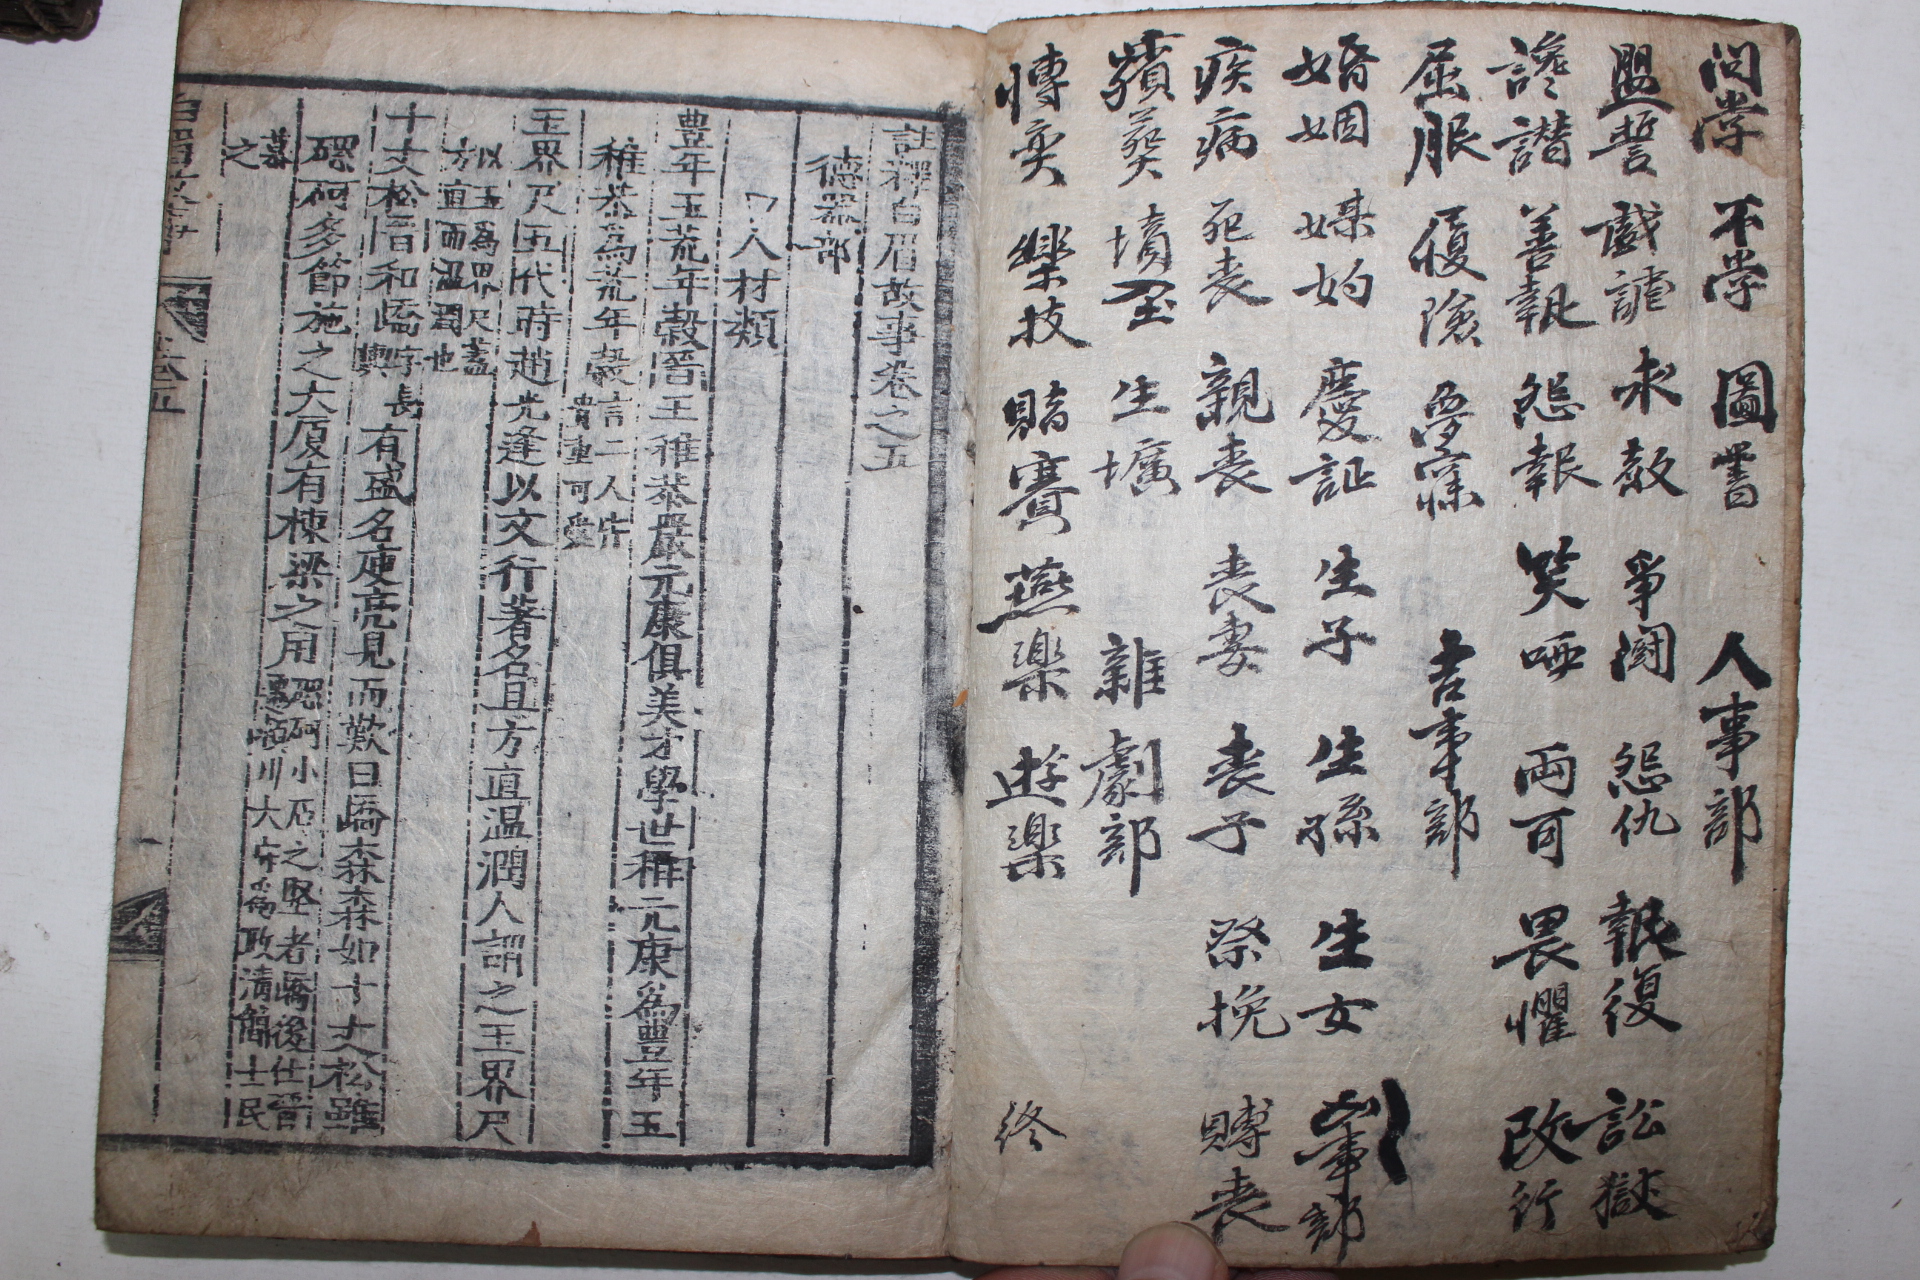 問学 不学 圖書 人事部
盟誓 戯謔 求教 爭鬪 怨仇 報復 訟獄
讒譖 善報 怨報 笑唖 両可 畏懼 改行
屈服 履險 夢寐 吉事部
婚姻 媒妁 慶誕 生子 生孫 生女 凶事部
疾病 死喪 親喪 喪妻 喪子 祭挽 賻喪
殯葬 墳墓 生壙 雜劇部
博奕 樂技 賭賽 燕楽 遊楽 終
註釋白眉故事卷之五
德器部
人材類
豊年玉荒年穀晉王稚恭嚴元康俱美才學世稱元康爲豊年玉
稚恭爲荒年穀言二人皆
貴重可愛
玉界尺五代時趙光逢以文行著名且方直温潤人謂之玉界尺
以玉爲界尺蓋
方直而温潤也
十丈松晋和嶠字長
輿
有盛名庾亮見而歎曰嶠森森如千丈松雖
磥砢多節施之大厦有棟梁之用磥砢小石之堅者嶠後仕晉
遷潁川大守爲政清簡士民
慕
之
卷五